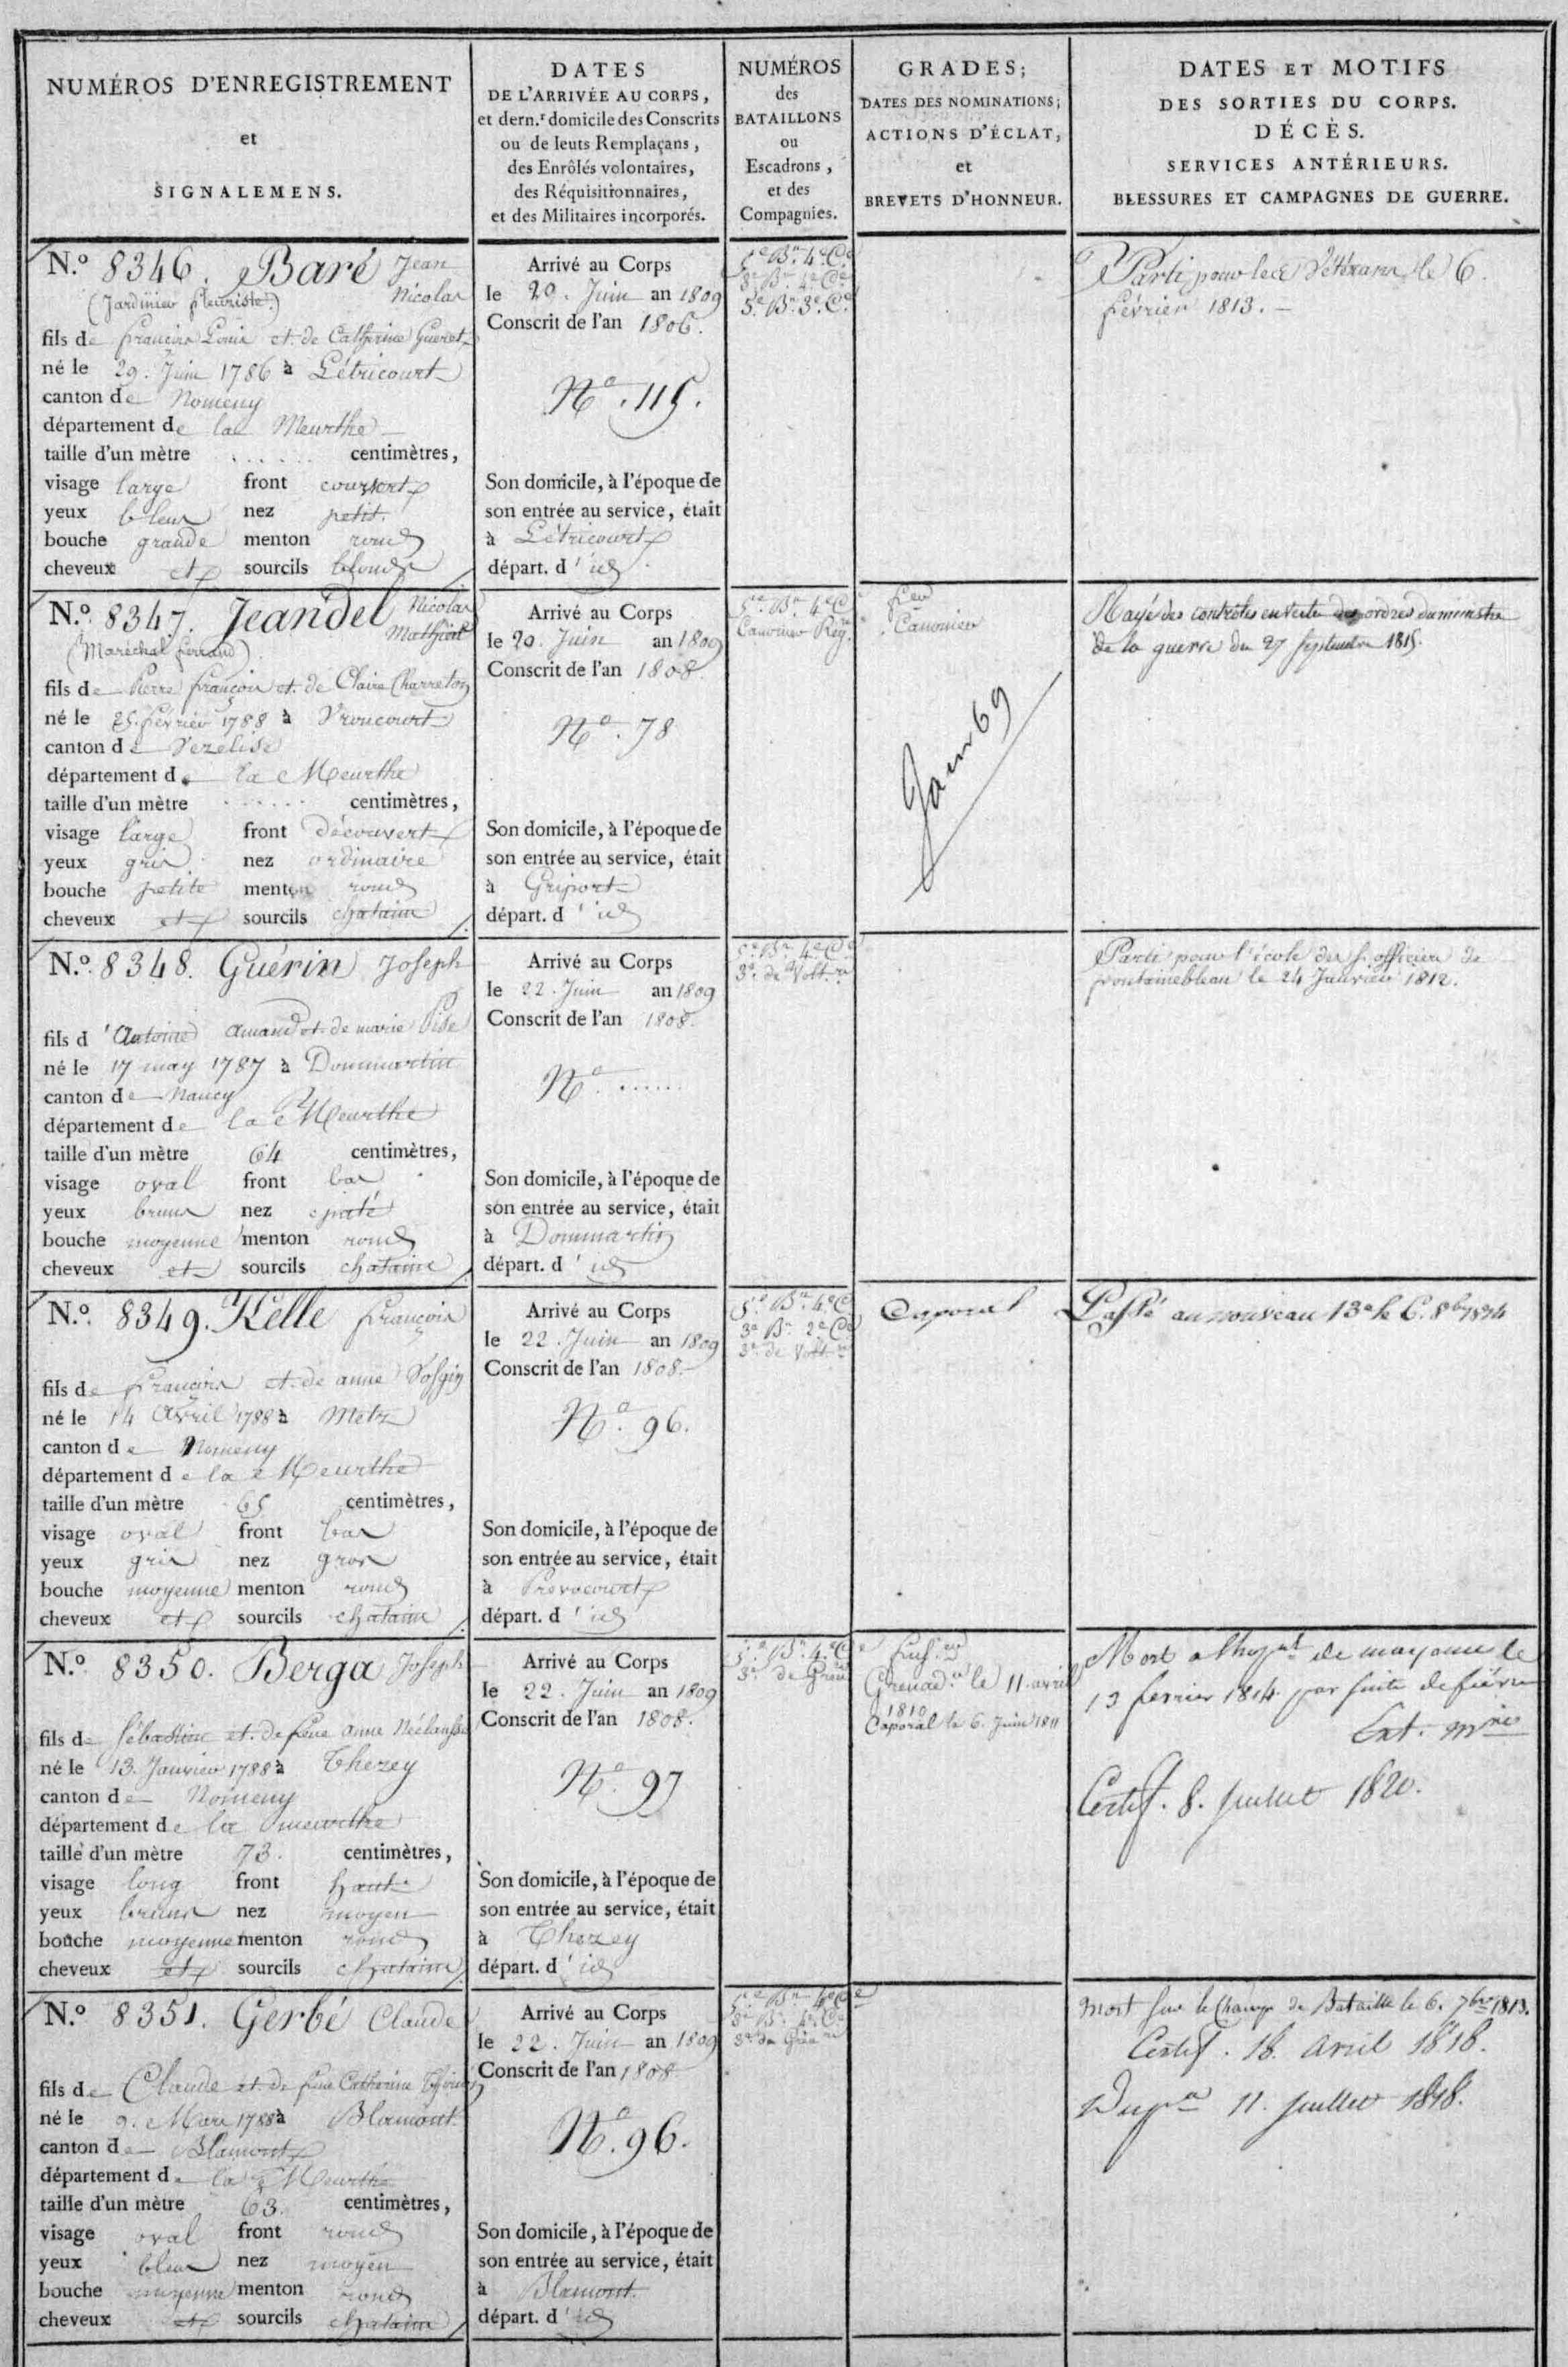 NUMÉROS D'ENREGISTREMENT
et
SIGNALEMENS.
DATES
DE L'ARRIVÉE AU CORPS,
et dern.r domicile des Conscrits
ou de leurs Remplaçans,
des Enrôlés volontaires,
des Réquisitionnaires,
et des Militaires incorporés.
NUMÉROS
des
BATAILLONS
ou
Escadrons,
et des
Compagnies.
GRADES;
DATES DES NOMINATIONS;
ACTIONS D'ÉCLAT,
et
BREVETS D'HONNEUR.
DATES ET MOTIFS
DES SORTIES DU CORPS.
DÉCÈS.
SERVICES ANTÉRIEURS.
BLESSURES ET CAMPAGNES DE GUERRE.
N.o 8346. Baré Jean
Nicolas
(Jardinier fleuriste)
fils de françois Louis et de Catherine Gueret
né le 29. Juin 1786 à Létricourt
canton de Nomeny
département de la Meurthe
taille d'un mètre ...... centimètres,
visage large front couvert
yeux bleus nez petit.
bouche grande menton rond
cheveux et sourcils blonds
Arrivé au Corps
le 20. Juin an 1809
Conscrit de l'an 1806.
No. 115.
Son domicile, à l'époque de
son entrée au service, était
à Létricourt
départ. d'id
5e Bn. 4e Cie
3e Bn. 4e Cie
5e Bn. 3e Cie
Parti pour les Vétérans le 6.
février 1813.
N.o 8347. Jeandel Nicolas
Mathiot
(Maréchal ferrand)
fils de Pierre françois et de Claire Charreton
né le 25. février 1788 à Vroncourt
canton de Vezelise
département de la Meurthe
taille d'un mètre ...... centimètres,
visage large front découvert
yeux gris nez ordinaire
bouche petite menton rond
cheveux et sourcils chatains
Arrivé au Corps
le 20. Juin an 1809
Conscrit de l'an 1808.
No. 78
Son domicile, à l'époque de
son entrée au service, était
à Griport
départ. d'id
5e Bn. 4e Cie
Canonier Reg.
Canonier
Rayé des controles en vertu des ordres du ministre
de la guerre du 27 septembre 1815.
N.o 8348. Guérin Joseph
fils d'Antoine amand et de marie
né le 17 may 1787 à Dommartin
canton de Nancy
département de la Meurthe
taille d'un mètre 64 centimètres,
visage oval front bas
yeux bruns nez épaté
bouche moyenne menton rond
cheveux et sourcils chatains
Arrivé au Corps
le 22. Juin an 1809
Conscrit de l'an 1808.
No. ......
Son domicile, à l'époque de
son entrée au service, était
à Dommartin
départ. d'id
5e Bn. 4e Cie
3e. de Volt.rs
Parti pour l'école des s. officiers de
fontainebleau le 24 Janvier 1812.
N.o 8349. Kelle françois
fils de françois et de anne
né le 14 Avril 1788 à Metz
canton de Nomeny
département de la Meurthe
taille d'un mètre 65 centimètres,
visage oval front bas
yeux gris nez gros
bouche moyenne menton rond
cheveux et sourcils chatains
Arrivé au Corps
le 22. Juin an 1809
Conscrit de l'an 1808.
No. 96.
Son domicile, à l'époque de
son entrée au service, était
à Prevocourt
départ. d'id
5e. Bn. 4e Cie
3e Bn. 2e Cie
3e. de Volt.rs
Caporal
Passé au nouveau 13e le 6. 8bre 1814
N.o 8350. Berga Joseph
fils de Sébastien et de feue anne
né le 13. Janvier 1788 à Thezey
canton de Nomeny
département de la meurthe
taille d'un mètre 73. centimètres,
visage long front haut
yeux bruns nez moyen
bouche moyenne menton rond
cheveux et sourcils chatains
Arrivé au Corps
le 22. Juin an 1809
Conscrit de l'an 1808.
No. 97
Son domicile, à l'époque de
son entrée au service, était
à Thezey
départ. d'id
5e Bn. 4e Cie
3e de Gren
Fus.er
Grenad.er le 11. avril
1810
Caporal le 6. Juin 1811
Mort a lhopal de mayence le
13 fevrier 1814. par suite de fièvre
Ext. mre
Certif. 8. Juillet 1820.
N.o 8351. Gerbé Claude
fils de Claude et de feue Catherine
né le 9. Mars 1788 à Blamont.
canton de Blamont
département de la Meurthe
taille d'un mètre 63. centimètres,
visage oval front rond
yeux bleus nez moyen
bouche moyenne menton rond
cheveux et sourcils chatains
Arrivé au Corps
le 22. Juin an 1809
Conscrit de l'an 1808
No. 96.
Son domicile, à l'époque de
son entrée au service, était
à Blamont.
départ. d'id
5e Bn 4e Cie
3e Bn. 4e. Cie
3e. de Gren
mort sur le Champ de Bataille le 6. 7bre 1813.
Certif. 18. avril 1818.
Dupta 11. Juillet 1818.